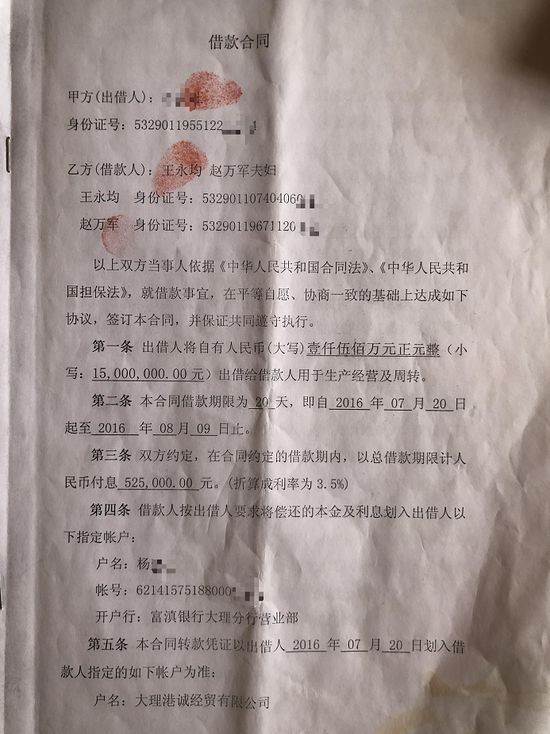 借款合同
甲方(出借人)：
身份证号：5329011955122
乙方(借款人)：王永均 赵万军夫妇
王永均 身份证号：532901107404060
赵万军 身份证号：53290119671120
以上双方当事人依据《中华人民共和国合同法》、《中华人民共和
国担保法》，就借款事宜，在平等自愿、协商一致的基础上达成如下
协议，签订本合同，并保证共同遵守执行。
第一条 出借人将自有人民币(大写)壹仟伍佰万元正元整（小
写：15,000,000.00 元）出借给借款人用于生产经营及周转。
第二条 本合同借款期限为 20 天，即自 2016 年 07 月 20 日
起至 2016 年 08 月 09 日止。
第三条 双方约定，在合同约定的借款期内，以总借款期限计人
民币付息 525,000.00 元。(折算成利率为 3.5%)
第四条 借款人按出借人要求将偿还的本金及利息划入出借人以
下指定帐户：
户名：杨
帐号：62141575188000
开户行：富滇银行大理分行营业部
第五条 本合同转款凭证以出借人 2016 年 07 月 20 日划入借
款人指定的如下帐户为准：
户名：大理港诚经贸有限公司